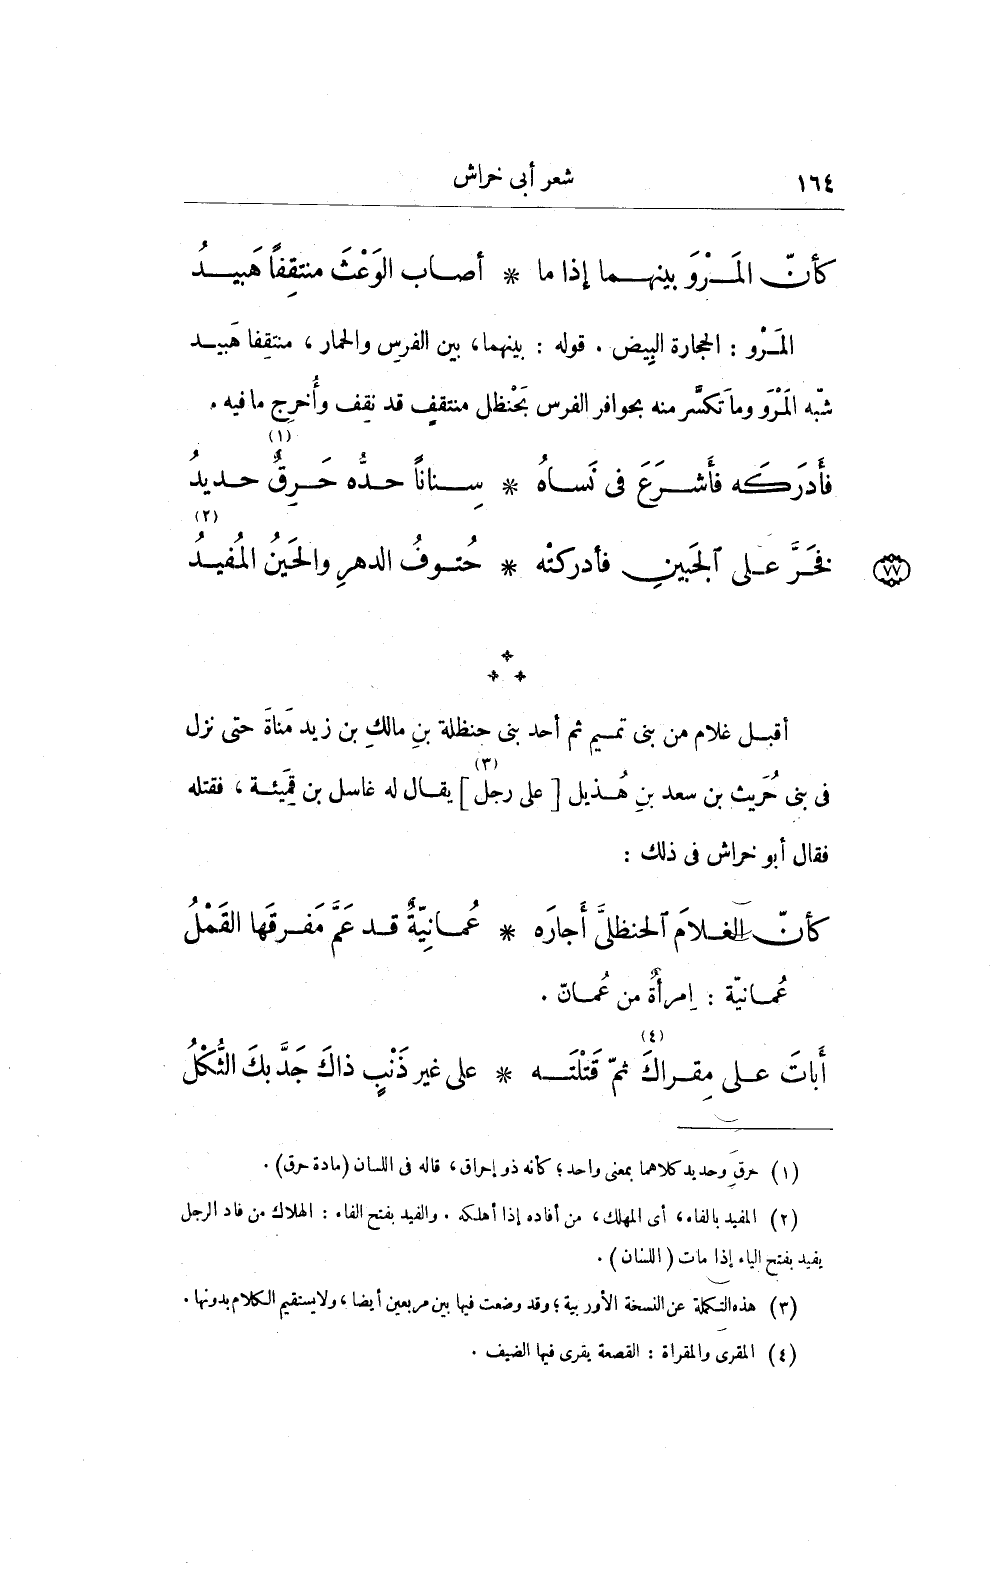 ١٦٤ شعر أبى خراش
كأنّ المَرْوَ بينهما إذا ما * أصاب الوَعْثَ منتقِفًا هَبيدُ
المَرْو : الحجارة البِيض . قوله : بينهما، بين الفرس والحمار ، منتقِفا هَبيد
شبّه المَرْوَ وما تَكسَّر منه بحوافر الفرس بَحنْظل منتقفٍ قد نقِف وأُخرِج ما فيه .
(١)
فأَدرَكَه فأَشرَعَ فى نَساهُ * سِنانًا حدُّه حَرِقٌ حديدُ
(٢)
فخَرَّ عَلى ٱلجَبينِ فأدركتْه * حُتوفُ الدهرِ والحَينُ المُفيدُ
٧٧
أقبل غلام من بنى تميم ثم أحد بنى حنظلة بنِ مالكِ بن زيد مَناةَ حتى نزل
(٣)
فى بنى حُرَيث بن سعد بنِ هُذيل [ على رجل ] يقال له غاسل بن قَمِيئة ، فقتله
فقال أبو خراش فى ذلك :
كأنّ الغلامَ ٱلحنظلىَّ أَجارَه * عُمانِيّةٌ قد عَمَّ مَفرقَها القَمْلُ
عُمانيّة : اِمرأةٌ من عُمانّ .
(٤)
أَباتَ على مِقراكَ ثمّ قَتَلْتَه * على غير ذَنْبٍ ذاكَ جَدَّ بكَ الثُّكْلُ
(١) حرق وحديد كلاهما بمعنى واحد ؛ كأنه ذو إحراق ، قاله فى اللسان (مادة حرق) .
(٢) المفيد بالفاء، أى المهلك، من أفاده إذا أهلكه . والفيد بفتح الفاء : الهلاك من فاد الرجل
يفيد بفتح الياء إذا مات (اللسان) .
(٣) هذه التكملة عن النسخة الأوربية ؛ وقد وضعت فيها بين مربعين أيضا ، ولا يستقيم الكلام بدونها .
(٤) المقرى والمقراة : القصعة يقرى فيها الضيف .